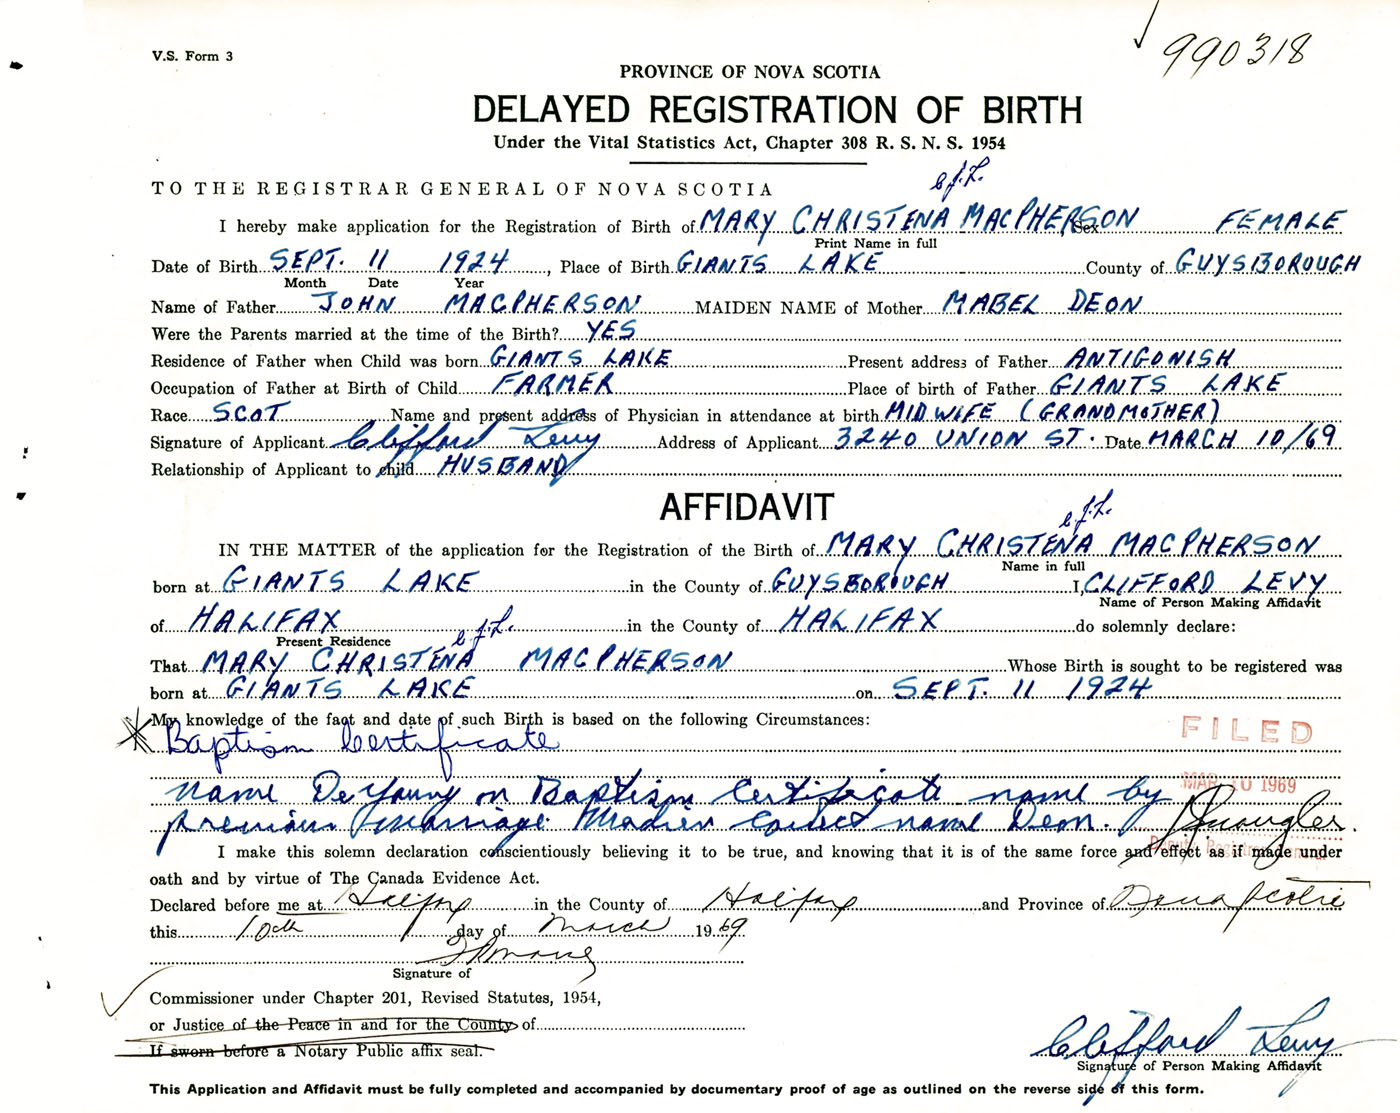 V.S. Form 3
990318
PROVINCE OF NOVA SCOTIA
DELAYED REGISTRATION OF BIRTH
Under the Vital Statistics Act, Chapter 308 R. S. N. S. 1954
TO THE REGISTRAR GENERAL OF NOVA SCOTIA
C.J.L.
I hereby make application for the Registration of Birth of MARY CHRISTENA MACPHERSON, Sex FEMALE
Print Name in full
Date of Birth SEPT. 11 1924, Place of Birth GIANTS LAKE County of GUYSBOROUGH
Month Date Year
Name of Father JOHN MACPHERSON MAIDEN NAME of Mother MABEL DEON
Were the Parents married at the time of the Birth? YES
Residence of Father when Child was born GIANTS LAKE Present address of Father ANTIGONISH
Occupation of Father at Birth of Child FARMER Place of birth of Father GIANTS LAKE
Race SCOT Name and present address of Physician in attendance at birth MIDWIFE (GRANDMOTHER)
Signature of Applicant Clifford Levy Address of Applicant 3240 UNION ST. Date MARCH 10/69
Relationship of Applicant to child HUSBAND
AFFIDAVIT
C.J.L.
IN THE MATTER of the application for the Registration of the Birth of MARY CHRISTENA MACPHERSON
Name in full
born at GIANTS LAKE in the County of GUYSBOROUGH I, CLIFFORD LEVY
Name of Person Making Affidavit
of HALIFAX in the County of HALIFAX do solemnly declare:
Present Residence C.J.L.
That MARY CHRISTENA MACPHERSON Whose Birth is sought to be registered was
born at GIANTS LAKE on SEPT. 11 1924
My knowledge of the fact and date of such Birth is based on the following Circumstances:
Baptism Certificate
FILED
MAR 10 1969
Name DeYoung on Baptism Certificate name by
previous marriage. Madien Correct name Deon.
Deputy Registrar General
I make this solemn declaration conscientiously believing it to be true, and knowing that it is of the same force and effect as if made under
oath and by virtue of The Canada Evidence Act.
Declared before me at Halifax in the County of Halifax and Province of Nova Scotia
this 10th day of March 1969
Signature of
Commissioner under Chapter 201, Revised Statutes, 1954,
or Justice of the Peace in and for the County of
If sworn before a Notary Public affix seal.
Clifford Levy
Signature of Person Making Affidavit
This Application and Affidavit must be fully completed and accompanied by documentary proof of age as outlined on the reverse side of this form.